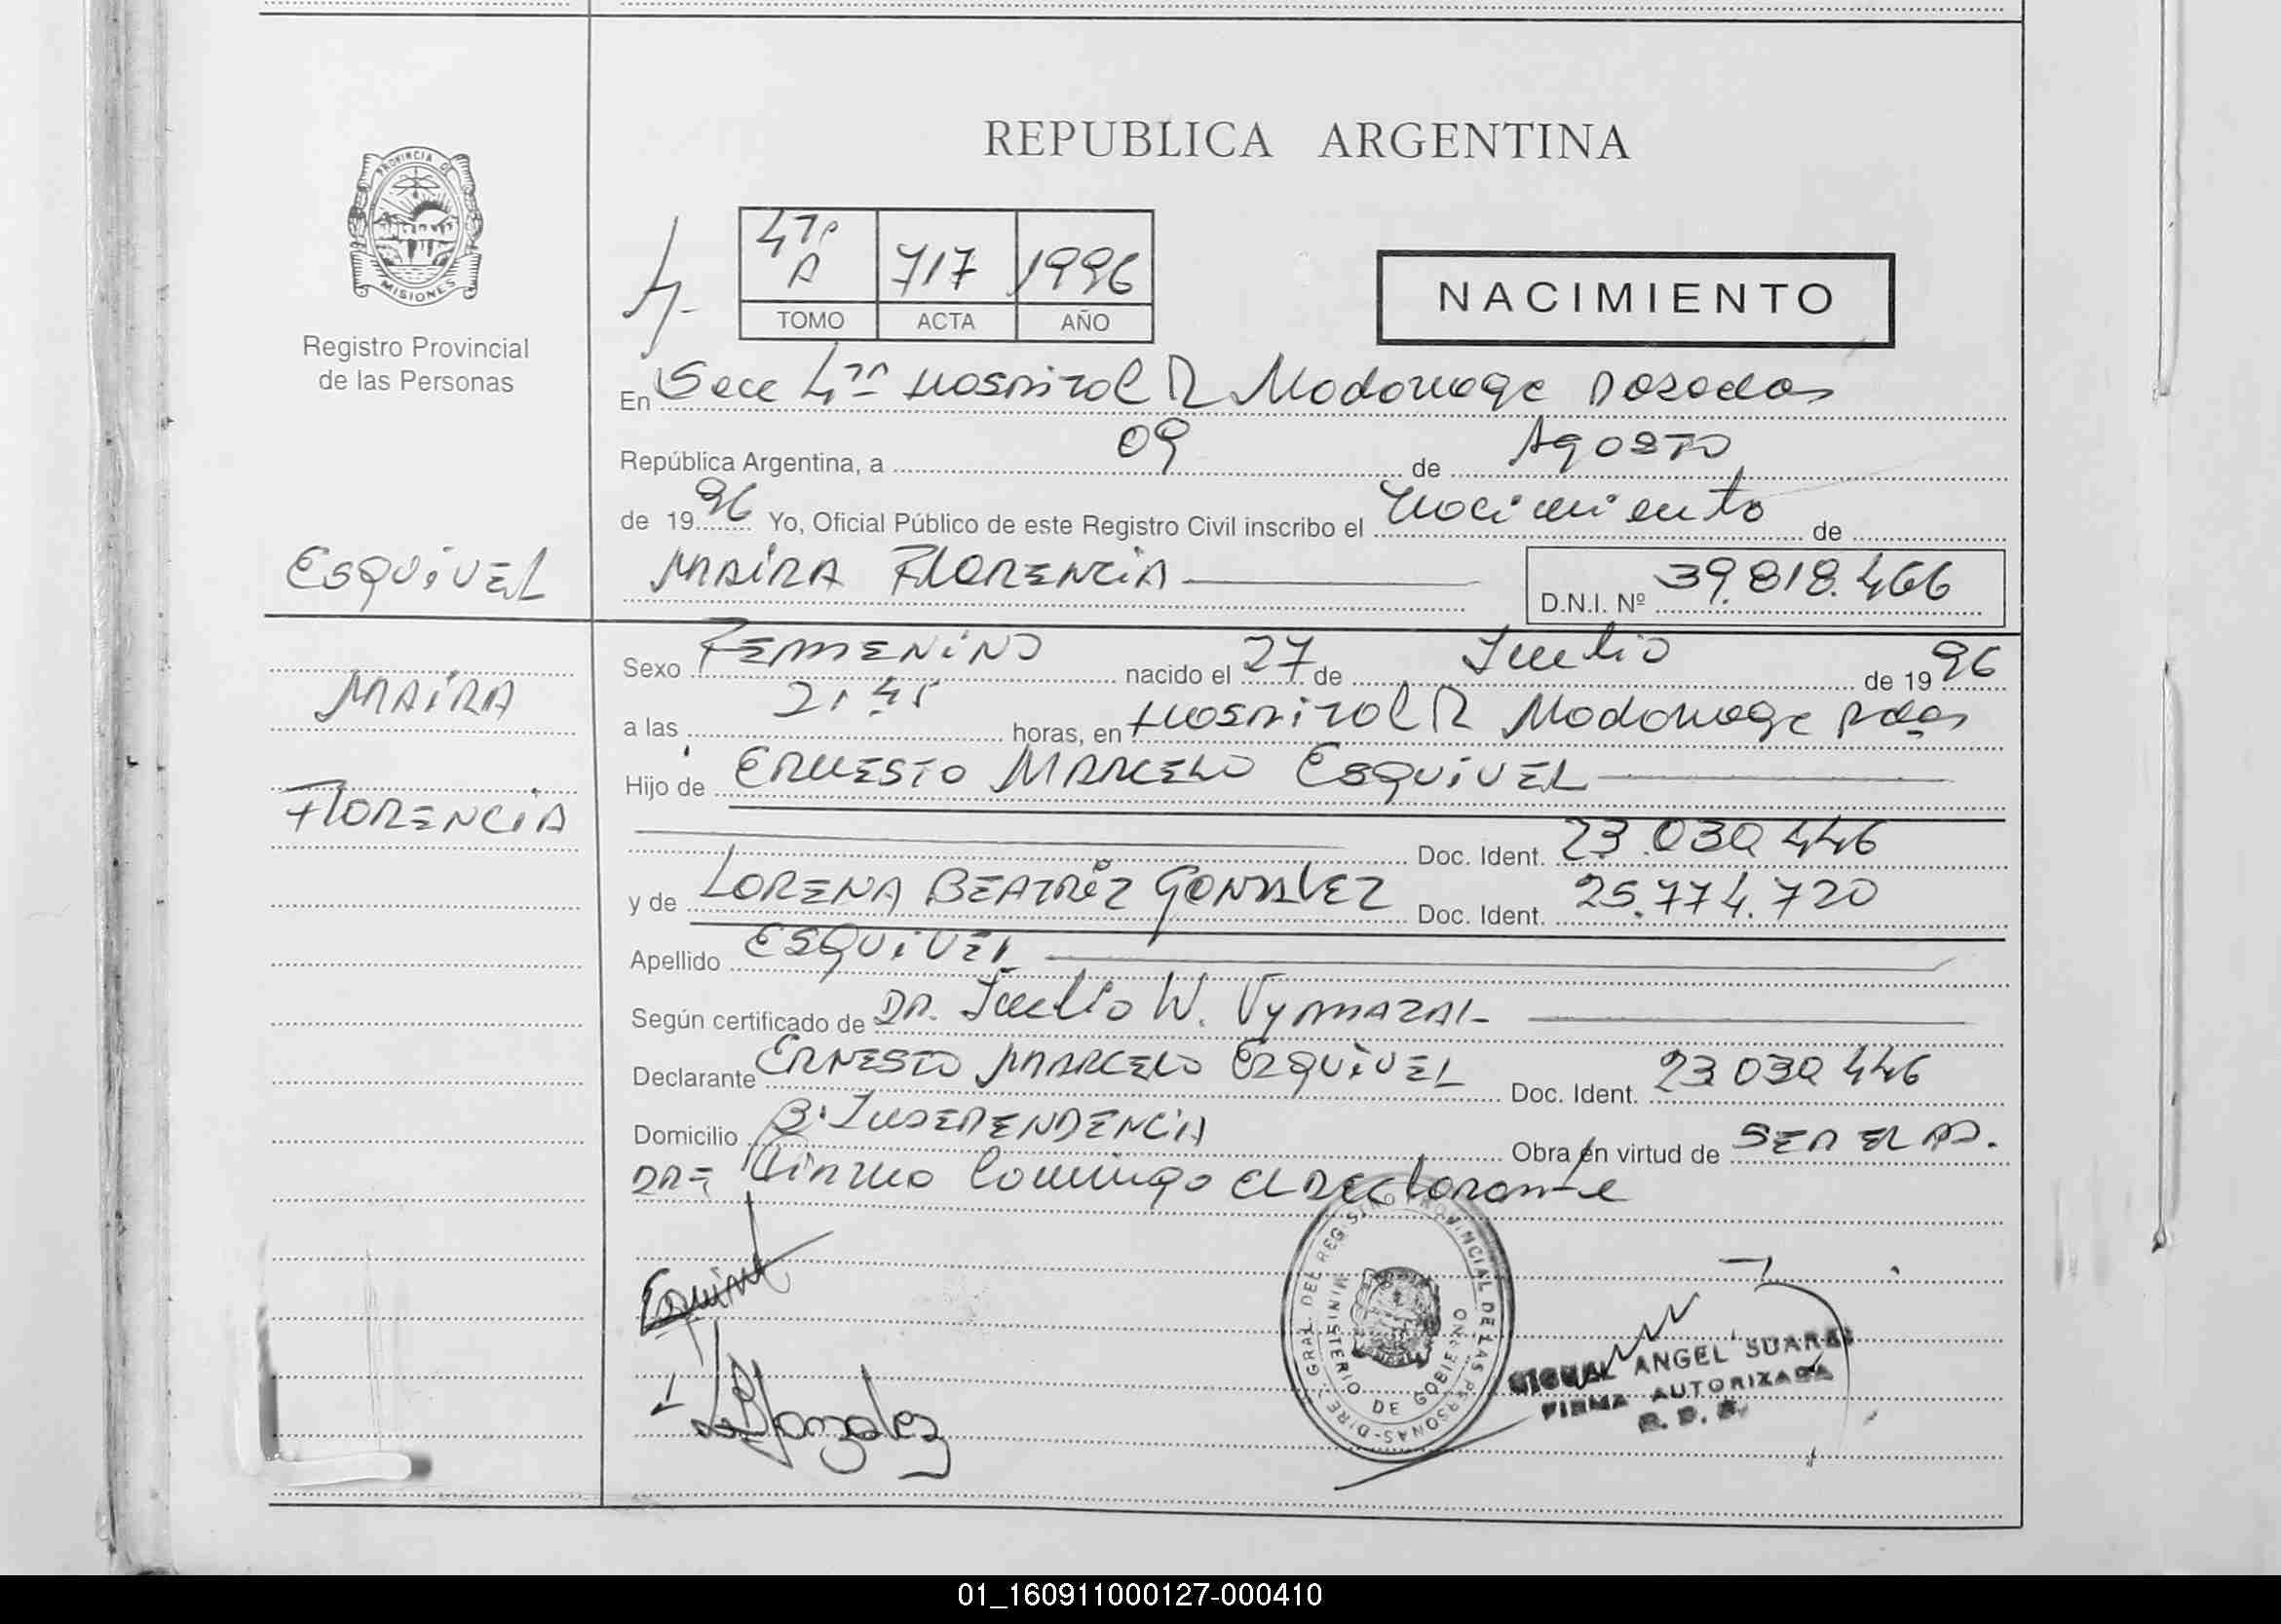 REPUBLICA ARGENTINA
PROVINCIA DE
MISIONES
Registro Provincial
de las Personas
4ta A 717 1996
TOMO ACTA AÑO
NACIMIENTO
En Secc 4ta Hospital R Madariaga Posadas
República Argentina, a 09 de Agosto
de 1996 Yo, Oficial Público de este Registro Civil inscribo el Nacimiento de
ESQUIVEL
MAIRA FLORENCIA
D.N.I. Nº 39.818.466
MAIRA
FLORENCIA
Sexo FEMENINO nacido el 27 de Julio de 1996
a las 21.45 horas, en Hospital R Madariaga Pdas
Hijo de ERNESTO MARCELO ESQUIVEL
Doc. Ident. 23.030.446
y de LORENA BEATRIZ GONZALEZ Doc. Ident. 25.774.720
Apellido ESQUIVEL
Según certificado de DR. Julio W. VYMAZAL
Declarante ERNESTO MARCELO ESQUIVEL Doc. Ident. 23.030.446
Domicilio B. INDEPENDENCIA Obra en virtud de SER EL
El Declarante
Esquivel
LBGonzalez
DIRE. GRAL. DEL REGISTRO PROVINCIAL DE LAS PERSONAS
MINISTERIO DE GOBIERNO
MIGUEL ANGEL SUAREZ
FIRMA AUTORIZADA
01_160911000127-000410